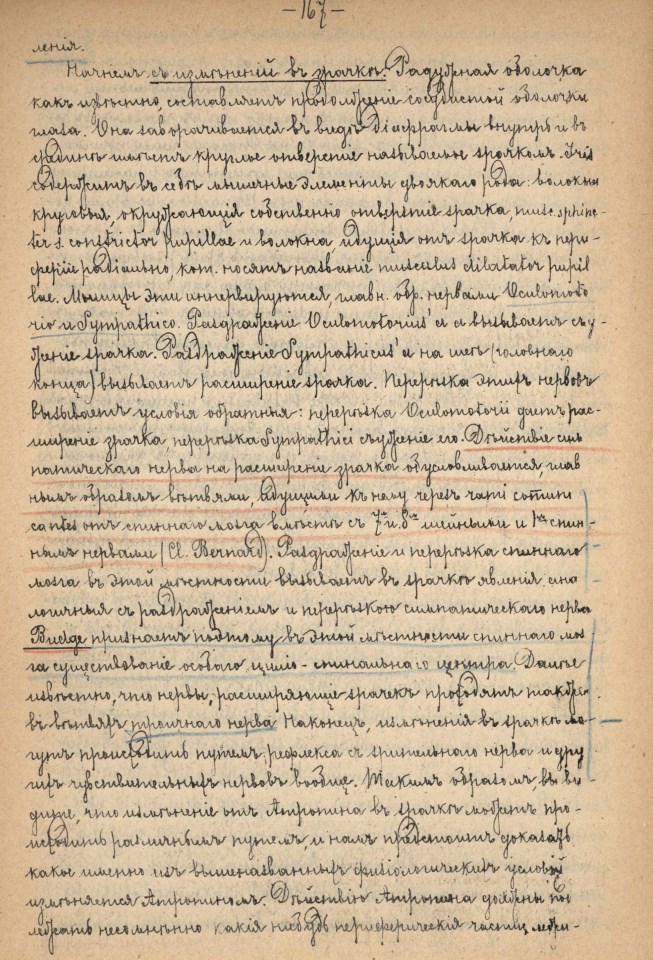 —167—
ленія.
Начнемъ съ измѣненій въ зрачкѣ. Радужная оболочка
какъ извѣстно, составляетъ продолженіе сосудистой оболочки
глаза. Она заворачивается въ видѣ діафрагмы внутрь и въ
срединѣ имѣетъ круглое отверстіе называемое зрачкомъ. Iris
содержитъ въ себѣ мышечные элементы двоякаго рода: волокна
круговыя, окружающія собственно отверстіе зрачка, musc. sphinc-
ter s. constrictor pupillae и волокна, идущія отъ зрачка къ пери-
феріи радіально, кот. носятъ названіе musculus dilatator pupil
lae. Мышцы эти иннервируются, главн. обр. нервами Oculomoto
rio и Sympathico. Раздраженіе Oculomotorius'а вызываетъ съу-
женіе зрачка. Раздраженіе Sympathicus'а на шеѣ (головнаго
конца) вызываетъ расширеніе зрачка. Перерѣзка этихъ нервовъ
вызываетъ условія обратныя: перерѣзка Oculomotorii даетъ рас-
ширеніе зрачка, перерѣзка Sympathici съуженіе его. Дѣйствіе сим
патическаго нерва на расширеніе зрачка обусловливается, глав
нымъ образомъ вѣтвями, идущими къ нему черезъ rami commu
cantes отъ спиннаго мозга вмѣстѣ съ 7м и 8м шейными и 1мъ спин-
нымъ нервами (Cl. Bernard). Раздраженіе и перерѣзка спиннаго
мозга въ этой мѣстности вызываетъ въ зрачкѣ явленія, ана
логичныя съ раздраженіемъ и перерѣзкою симпатическаго нерва
Budge признаетъ поэтому въ этой мѣстности спиннаго моз
га существованіе особаго циліо-спинальнаго центра. Далѣе
извѣстно, что нервы, расширяющіе зрачекъ проходятъ также
въ вѣтвяхъ троичнаго нерва. Наконецъ, измѣненія въ зрачкѣ мо-
гутъ происходить путемъ рефлекса съ зрительнаго нерва и дру
гихъ чувствительныхъ нервовъ вообще. Такимъ образомъ, вы ви
дите, что измѣненіе отъ Атропина въ зрачкѣ можетъ про-
исходить различнымъ путемъ, и намъ предстоитъ доказать
какое именно изъ вышеназванныхъ физіологическихъ условій
измѣняется Атропиномъ. Дѣйствію Атропина должны под
лежать несомнѣнно какія нибудь периферическія части,